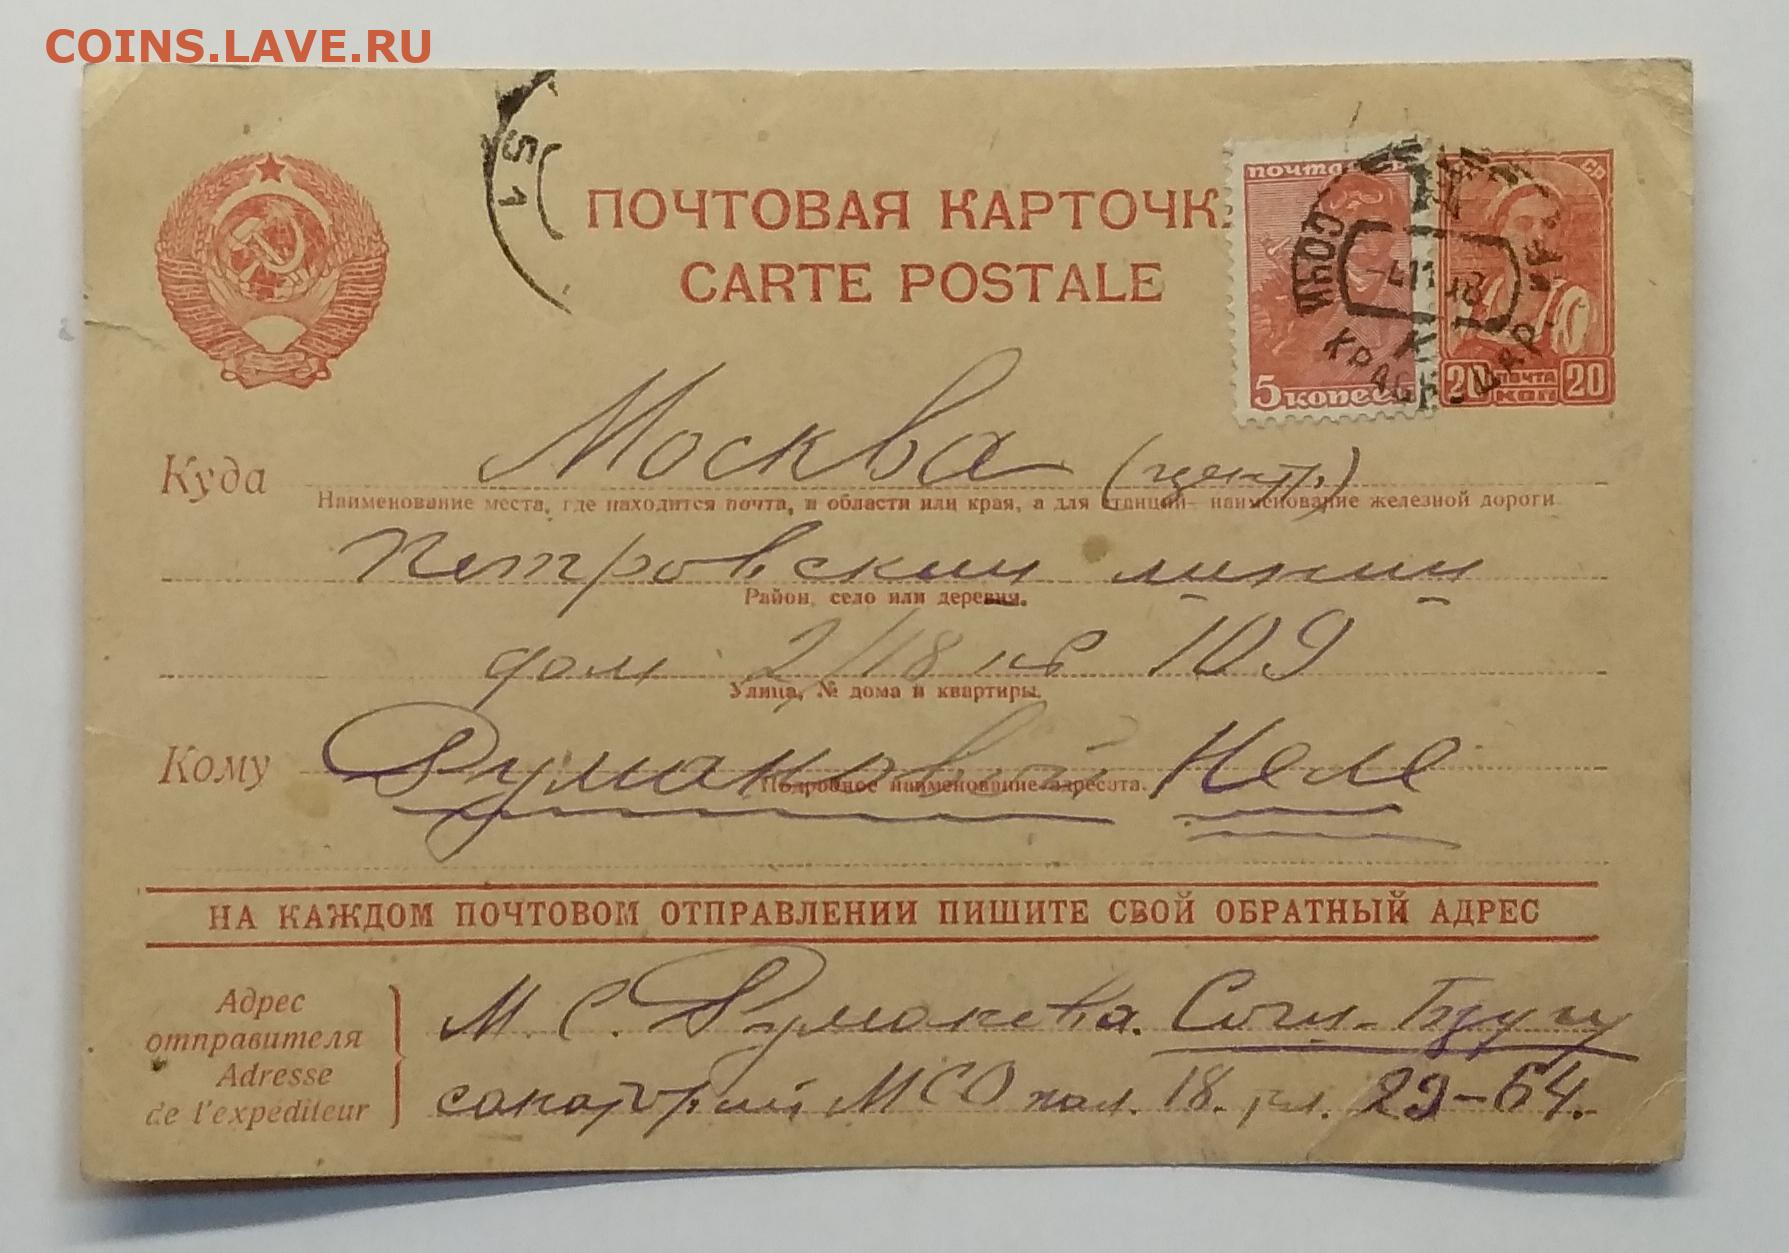 COINS.LAVE.RU
51
ПОЧТОВАЯ КАРТОЧК
CARTE POSTALE
почта
5 копеек
СОЧИ
-4 11 48
К
КРАСНОДАР.
СР
20 ПОЧТА КОП 20
Куда Москва (центр.)
Наименование места, где находится почта, и области или края, а для станций наименование железной дороги
Петровские линии
Район, село или деревня.
дом 2/18 кв 109
Улица, № дома и квартиры.
Кому Румаковой Неле
Подробное наименование адресата.
НА КАЖДОМ ПОЧТОВОМ ОТПРАВЛЕНИИ ПИШИТЕ СВОЙ ОБРАТНЫЙ АДРЕС
Адрес
отправителя
Adresse
de l'expéditeur
М. С. Румакова. Сочи-
санаторий МСО пал. 18. 29-64.